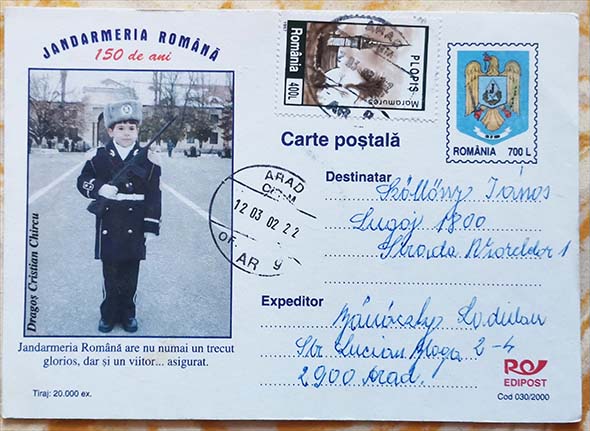 JANDARMERIA ROMÂNĂ
150 de ani
Dragoș Cristian Chircu
Jandarmeria Română are nu numai un trecut
glorios, dar și un viitor... asigurat.
Tiraj: 20.000 ex.
România
400L
PLOPIȘ
Maramureș
1997
ROMÂNIA 700 L
Carte poștală
ARAD
12 03 02 22
OF. AR 9
Destinatar
János
Lugoj 1800
Strada
Expeditor
Str Lucian Blaga 2-4
2900 Arad.
EDIPOST
Cod 030/2000